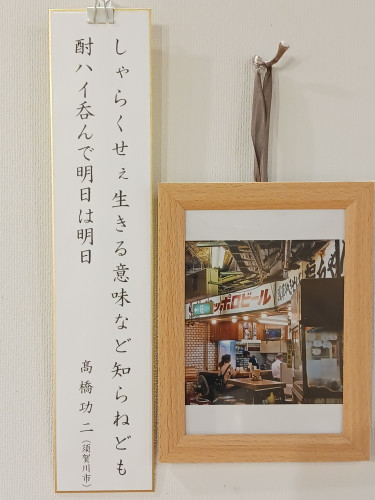 しゃらくせぇ生きる意味など知らねども
酎ハイ呑んで明日は明日
髙橋功二(須賀川市)
サッポロビール